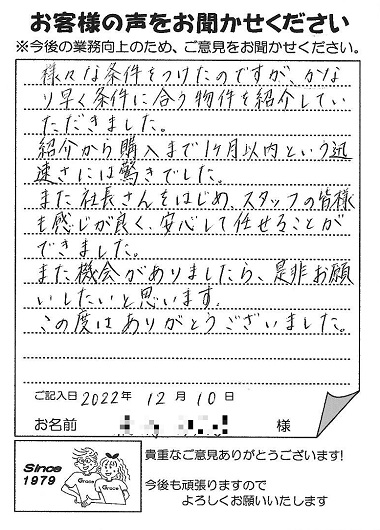 お客様の声をお聞かせください
※今後の業務向上のため、ご意見をお聞かせください。
様々な条件をつけたのですが、かな
り早く条件に合う物件を紹介してい
ただきました。
紹介から購入まで1ヶ月以内という迅
速さには驚きでした。
また社長さんをはじめ、スタッフの皆様
も感じが良く、安心して任せることが
できました。
また機会がありましたら、是非お願
いしたいと思います。
この度はありがとうございました。
ご記入日 2022年 12月 10日
お名前 様
Since
1979
Grace
Grace
貴重なご意見ありがとうございます!
今後も頑張りますので
よろしくお願いいたします